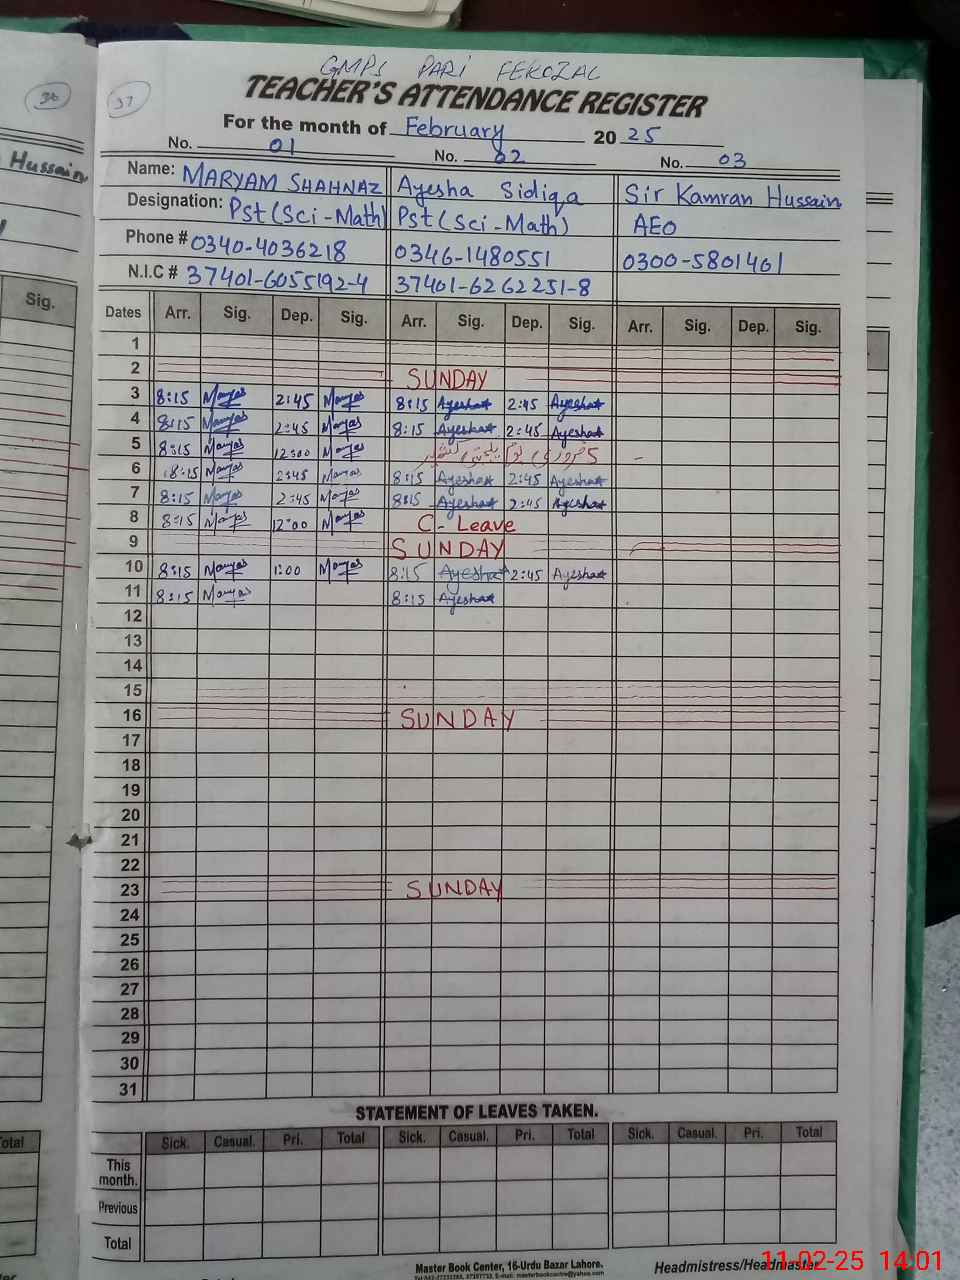 36
37
Hussain
Sig.
Total
GMPS PARI FEROZAL
TEACHER'S ATTENDANCE REGISTER
For the month of February 2025
No. 01 No. 02 No. 03
Name: MARYAM SHAHNAZ Ayesha Sidiqa Sir Kamran Hussain
Designation: Pst (Sci-Math) Pst (Sci-Math) AEO
Phone # 0340-4036218 0346-1480551 0300-5801461
N.I.C # 37401-6055192-4 37401-6262251-8
Dates Arr. Sig. Dep. Sig. Arr. Sig. Dep. Sig. Arr. Sig. Dep. Sig.
1
2 SUNDAY
3 8:15 2:45 8:15 Ayesha 2:45 Ayesha
4 8:15 2:45 8:15 Ayesha 2:45 Ayesha
5 8:15 12:00 5 فروری یوم یکجہتی کشمیر
6 8:15 2:45 8:15 Ayesha 2:45 Ayesha
7 8:15 2:45 8:15 Ayesha 2:45 Ayesha
8 8:15 12:00 C-Leave
9 SUNDAY
10 8:15 1:00 8:15 Ayesha 2:45 Ayesha
11 8:15 8:15 Ayesha
12
13
14
15
16 SUNDAY
17
18
19
20
21
22
23 SUNDAY
24
25
26
27
28
29
30
31
STATEMENT OF LEAVES TAKEN.
Sick. Casual. Pri. Total Sick. Casual. Pri. Total Sick. Casual. Pri. Total
This month.
Previous
Total
Master Book Center, 16-Urdu Bazar Lahore.
Headmistress/Headmaster
11-02-25 14:01